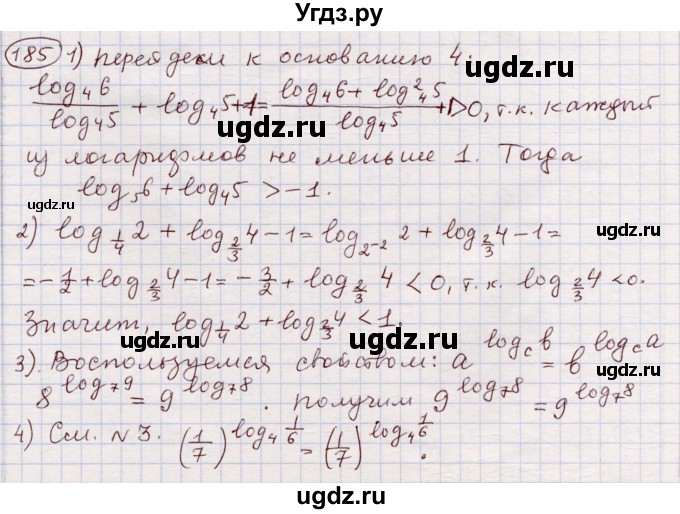 Угдз.ру
185 1) перейдем к основанию 4.
ugdz.ru
log₄6/log₄5 + log₄5+1 = (log₄6 + log²₄5)/log₄5 + 1>0, т.к. каждый
из логарифмов не меньше 1. Тогда
log₅6 + log₄5 > -1.
ugdz.ru
ugdz.ru
2) log_{1/4} 2 + log_{2/3} 4 - 1 = log_{2⁻²} 2 + log_{2/3} 4 - 1 =
= -1/2 + log_{2/3} 4 - 1 = -3/2 + log_{2/3} 4 < 0, т.к. log_{2/3} 4 < 0.
Значит, log_{1/4} 2 + log_{2/3} 4 < 1.
ugdz.ru
ugdz.ru
3). Воспользуемся свойством: a^{log_c b} = b^{log_c a}
8^{log₇9} = 9^{log₇8}. получим 9^{log₇8} = 9^{log₇8}
4) См. №3. (1/7)^{log₄ 1/6} = (1/7)^{log₄ 1/6}.
ugdz.ru
ugdz.ru